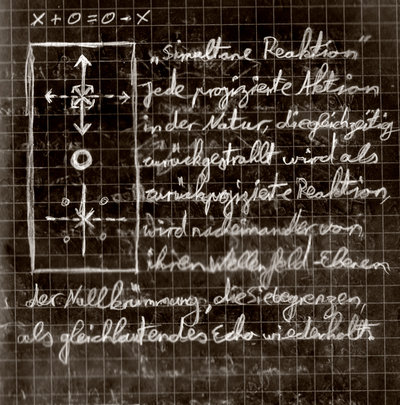 x + 0 = 0 - x
„Simultane Reaktion"
Jede projizierte Aktion
in der Natur, die gleichzeitig
zurückgestrahlt wird als
zurückprojizierte Reaktion,
wird nacheinander von
ihren Wellenfeld-Ebenen
der Nullkrümmung, die sie begrenzen,
als gleichlautendes Echo wiederholt.